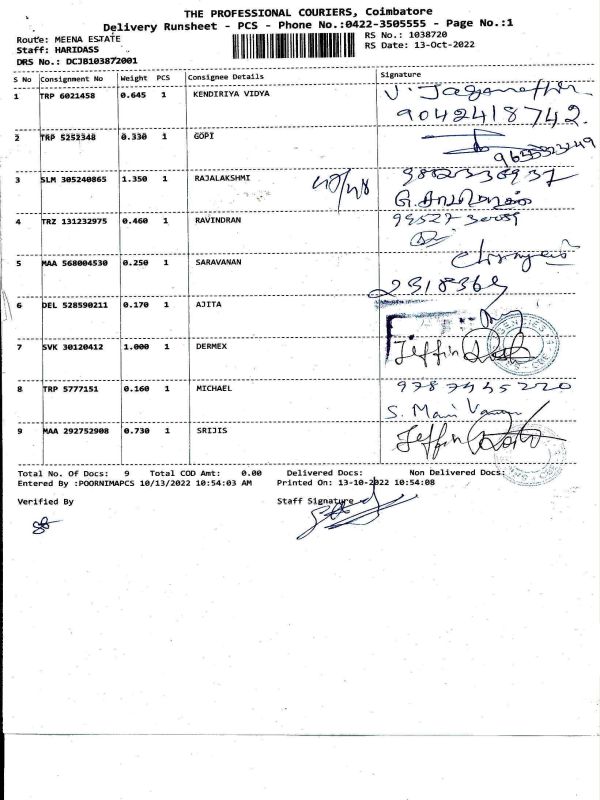 THE PROFESSIONAL COURIERS, Coimbatore
Delivery Runsheet - PCS - Phone No.:0422-3505555 - Page No.:1
Route: MEENA ESTATE
RS No.: 1038720
Staff: HARIDASS
RS Date: 13-Oct-2022
DRS No.: DCJB103872001
S No Consignment No Weight PCS Consignee Details Signature
1 TRP 6021458 0.645 1 KENDIRIYA VIDYA
9042418742.
2 TRP 5252348 0.330 1 GOPI
3 SLM 305240865 1.350 1 RAJALAKSHMI
4 TRZ 131232975 0.460 1 RAVINDRAN
5 MAA 568004530 0.250 1 SARAVANAN
2318369
6 DEL 528590211 0.170 1 AJITA
7 SVK 30120412 1.000 1 DERMEX Jeffin
8 TRP 5777151 0.160 1 MICHAEL 9787445220
S. Mani
9 MAA 292752908 0.730 1 SRIJIS Jeffin
Total No. Of Docs: 9 Total COD Amt: 0.00 Delivered Docs: Non Delivered Docs:
Entered By :POORNIMAPCS 10/13/2022 10:54:03 AM Printed On: 13-10-2022 10:54:08
Verified By Staff Signature